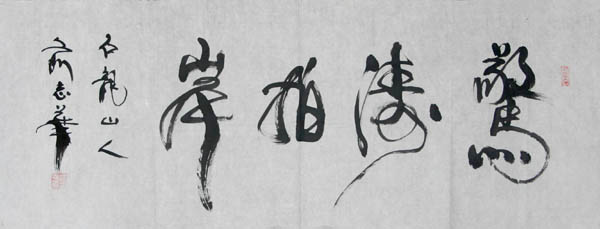 驚濤拍岸
龍山人
志華